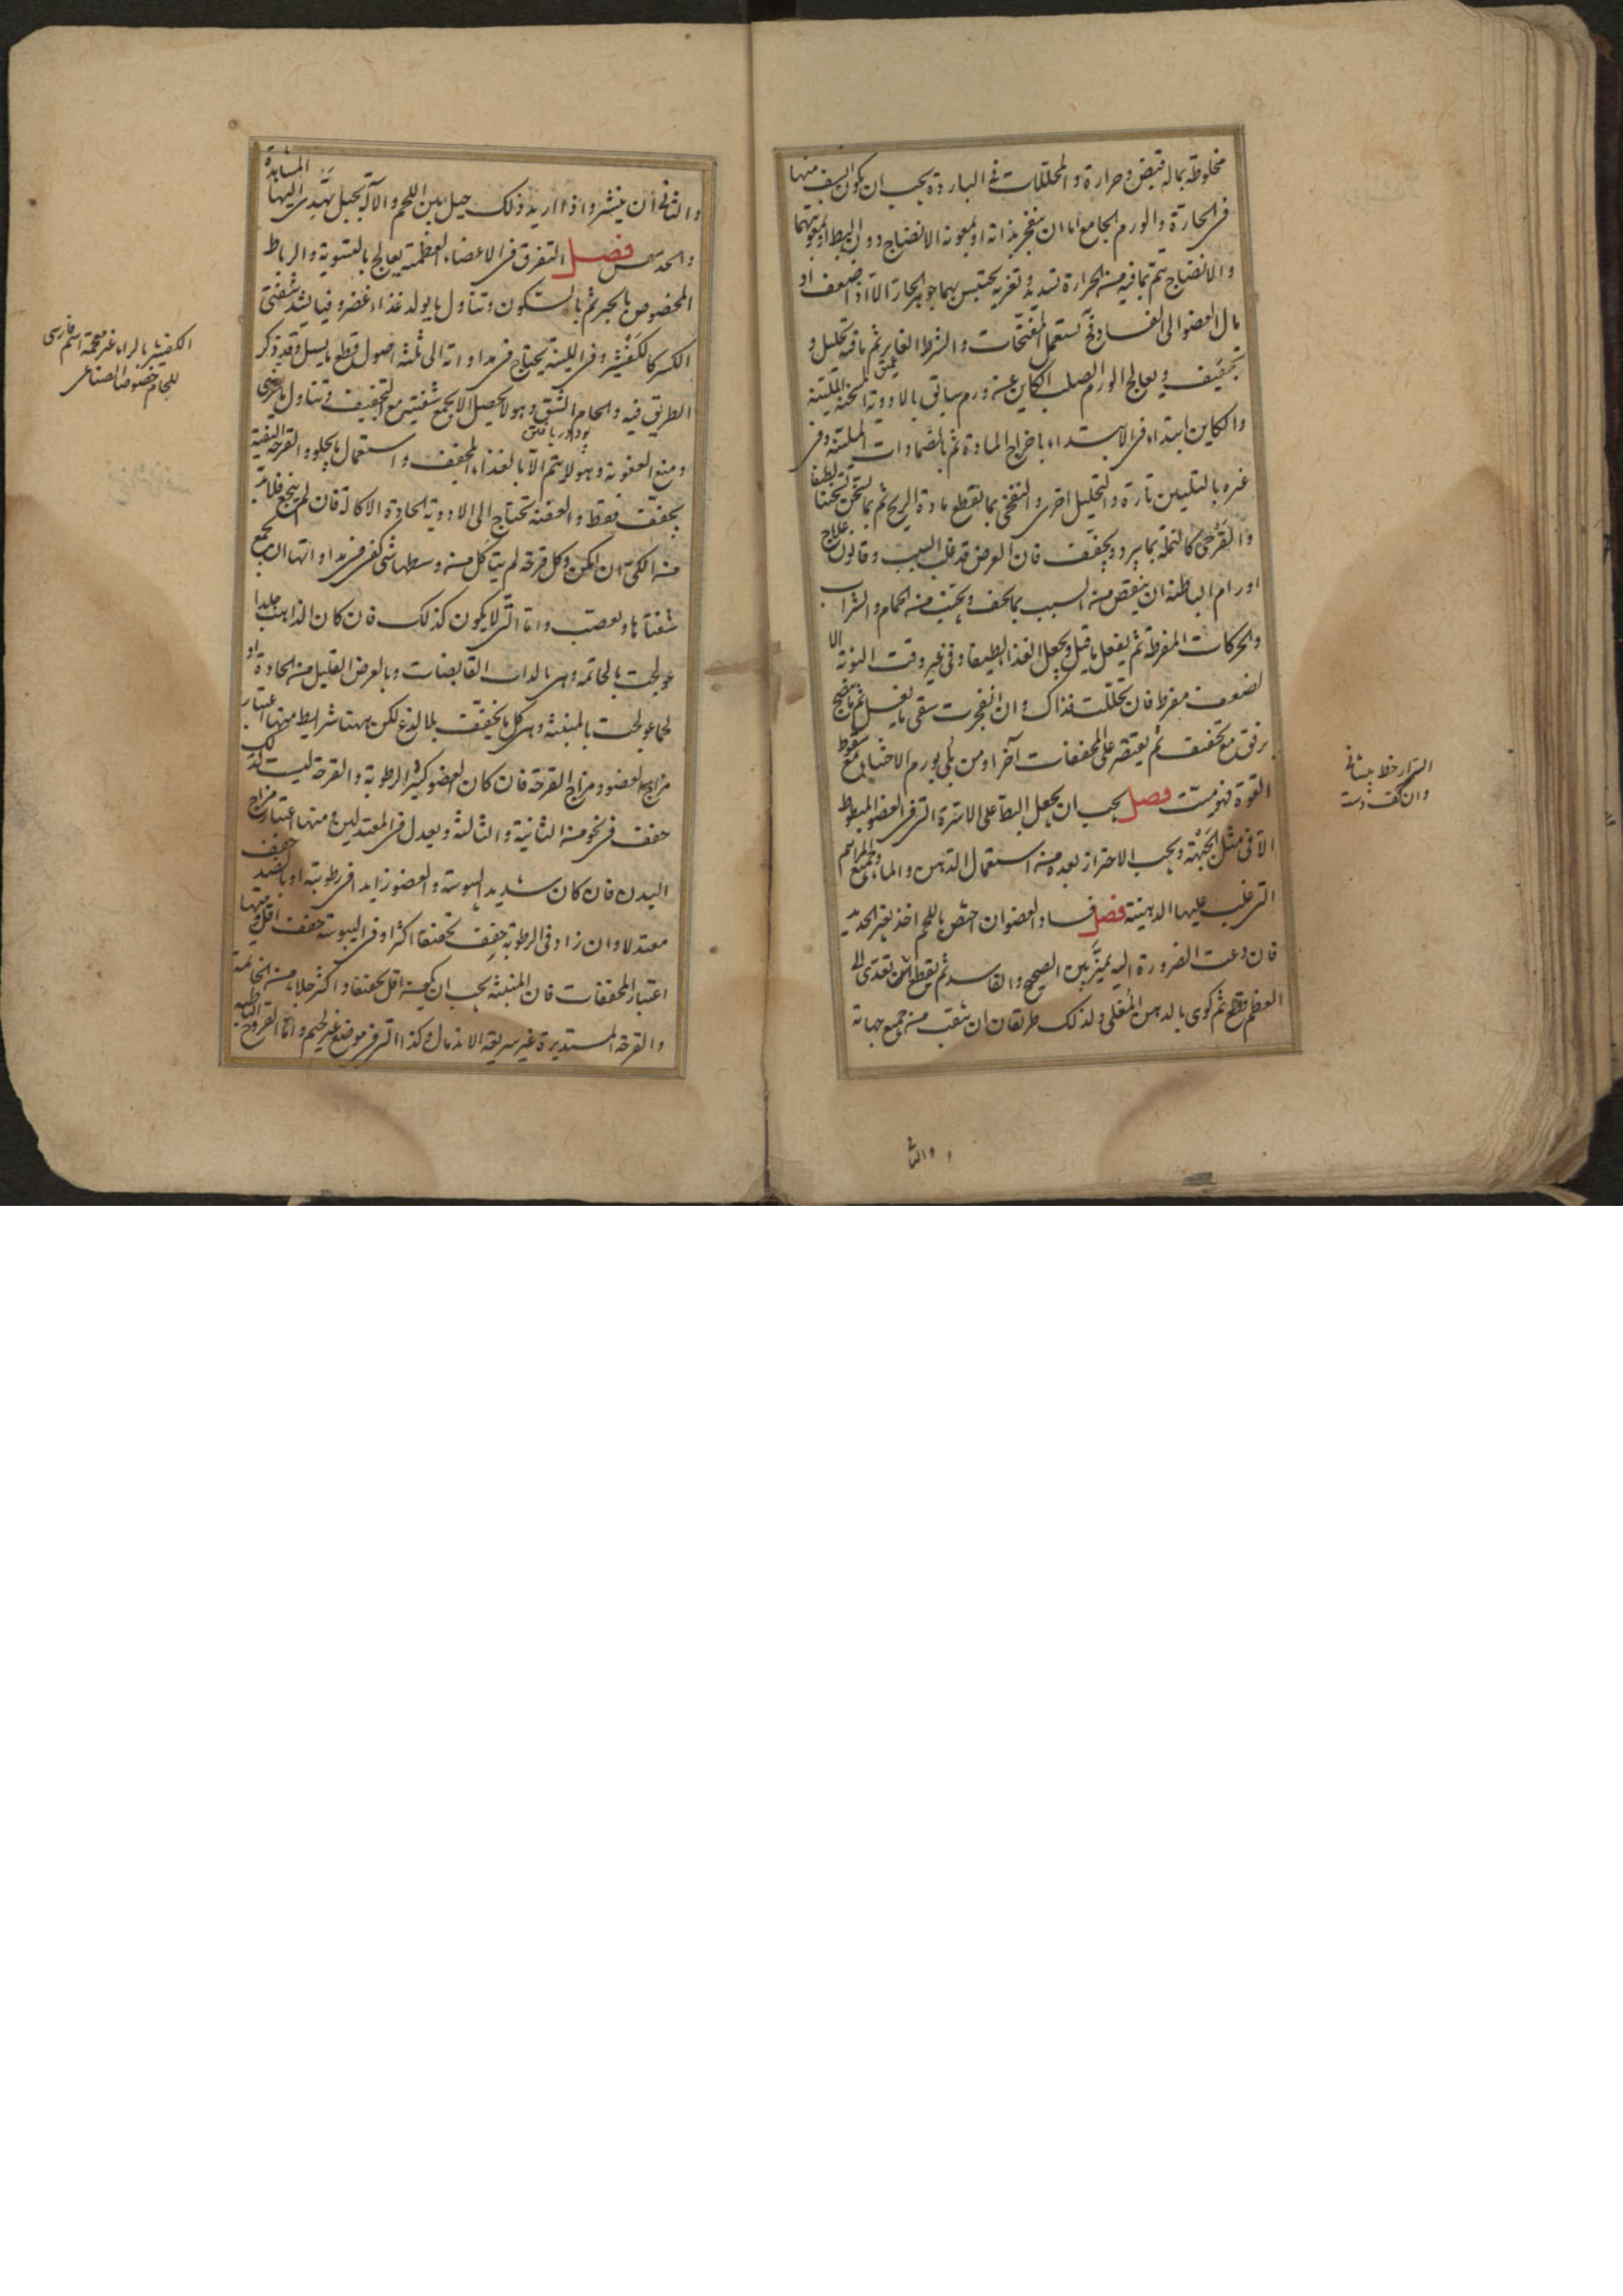 مخلوطة بماله قبض وحرارة والمحللات في الباردة يجب ان يكون اليبس منها
في الحارة والورم الجامع اما ان ينفجر بذاته او بمعونة الانضاج دون البط او بمعونتهما
والانضاج يتم بما فيه من الحرارة تسديد وتغرية يحتبس بهما جوهر الحار الا اذا ضعف او
مال العضو الى الفساد فح تستعمل المفتحات والشرط الغاير ثم ما فيه تحليل و
تجفيف ويعالج الورم الصلب الكاين عن ورم سابق بالادوية المسخنة الملينة
والكاين ابتداء في الابتداء باخراج المادة ثم بالضمادات الملينة وفي
غيره بالتليين تارة والتحليل اخرى والنفخي بما يقطع مادة الريح ثم بما يسخن تسخينا لطيفا
والقرحي كالنملة بما يبرد ويجفف فان العرض قد غلب السبب وقانون علاج
اورام الباطنة ان ينقص من السبب بما يخف ويجتنب من الحمام والشراب
والحركات المفرطة ثم يفعل ما قيل ويجعل الغذاء لطيفا وفي غير وقت النوبة الا
لضعف مفرط فان تحللت فذاك وان انفجرت سقي ما يغسل ثم ما ينضج
برفق مع تجفيف ثم يقتصر على المجففات آخرا ومن بلي بورم الاحشا مع سقوط
القوة فهو ميت فصل يجب ان يجعل البط على الاسرة التي في العضو المبطوط
الا في مثل الجبهة ويجب الاحتراز بعده من استعمال الدهن والماء وجميع المراهم
التي غلب عليها الدهنية فصل فساد العضو ان اختص باللحم اخذ بغير الحديد
فان دعت الضرورة اليه يميز بين الصحيح والفاسد ثم يقطع وان تعدى الى
العظم قطع ثم كوى بالدهن المغلي ولذلك طريقان ان يثقب من جميع جهاته
والثاني
السرار خط پيشاني
وان كف دسته
والثاني ان ينشر واذا اريد ذلك حيل بين اللحم والآلة بحبل يهتدي اليها المشاهدة
والحدس فصل التفرق في الاعضاء العظمية يعالج بالتسوية والرباط
المخصوص بالجبر ثم بالسكون وتناول ما يولد غذاء غضروفيا يشد شفتي
الكسر كالكفشير وفي اللينة يحتاج في مداواته الى ثلثة اصول قطع ما يسيل وقد ذكر
الطريق فيه والحام الشق وهو لا يحصل الا بجمع شفتين مع التجفيف وتناول ما يغري
ومنع العفونة وهو لا يتم الا بالغذاء المجفف واستعمال ما يجلو والقرحة النقية
يجفف فقط والعفنة تحتاج الى الادوية الحادة الاكالة فان لم ينجع فلا بد
من الكي ان امكن وكل قرحة لم يتأكل من وسطها شي كفى في مداواتها ان يجمع
شفتاها ويعصب واما التي لا يكون كذلك فان كان الذاهب جلدا
عولجت بالخاتمة وهي بالذات القابضات وبالعرض القليل من الحادة او
لحما عولجت بالمنبتة وهي كل ما يجفف بلا لذع لكن ههنا شرايط منها اعتبار
مزاج العضو ومزاج القرحة فان كان العضو كثير الرطوبة والقرحة ليست كذلك
جفف في نحو من الثانية والثالثة ويعدل في المعتدلين ومنها اعتبار مزاج
البدن فان كان شديد اليبوسة والعضو زايدا في رطوبته او بالضد جفف
معتدلا وان زاد في الرطوبة جفف تجفيفا اكثر او في اليبوسة جفف اقل ومنها
اعتبار المجففات فان المنبتة يجب ان يكون اقل تجفيفا واكثر جلاء من الخاتمة
والقرحة المستديرة غير سريعة الاندمال وكذا التي في موضع غير لحيم واما القروح الباطنة
الكفشير بالراء غير معجمة اسم فارسي
للحام خصوصا الصناعي